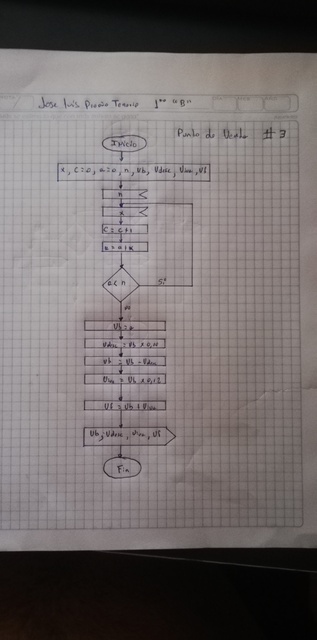 Jose Luis 1ro "B"
Punto de Venta #3
Inicio
x, c=0, a=0, n, Vb, Vdesc, Viva, Vf
n
x
c = c+1
a = a+x
c< n
Si
no
Vb = a
Vb = Vb - Vdesc
Viva = Vb x 0,12
Vf = Vb + Viva
Vb, Vdesc, Viva, Vf
Fin